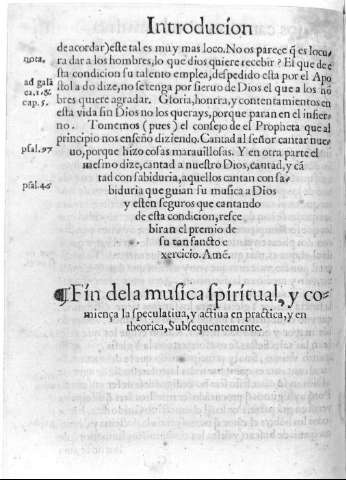 Introducion
de acordar) este tal es muy mas loco. No os pareçe q̃ es locu-
nota,
ra dar a los hombres, lo que dios quiere recebir? El que de e
sta condicion su talento emplea, despedido esta por el Apo
ad galã
stol a do dize, no se tenga por sieruo de Dios el que a los hõ
ca, 1. &
bres quiere agradar. Gloria, honrra, y contentamientos en
cap. 5.
esta vida sin Dios no los querays, porque paran en el infier
no. Tomemos (pues) el consejo de el Propheta que al
principio nos enseño diziendo. Cantad al señor cantar nue-
psal. 97
uo, porque hizo cosas marauillosas. Y en otra parte el
mesmo dize, cantad a nuestro Dios, cantad, y cã
tad con sabiduria, aquellos cantan con sa-
psal. 46
biduria que guian su musica a Dios
y esten seguros que cantando
de esta condicion, resce
biran el premio de
su tan sancto e
xercicio. Amẽ.
¶Fin dela musica spiritual, y co-
miença la speculatiua, y actiua en practica, y en
theorica, Subsequentemente.